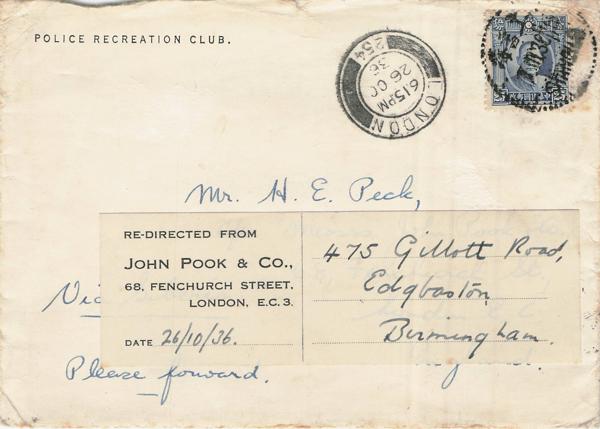 POLICE RECREATION CLUB.
LONDON
6 15 PM
26 OC
36
254
25
Mr. H. E. Peck,
RE-DIRECTED FROM
JOHN POOK & Co.,
68, FENCHURCH STREET,
LONDON, E.C.3.
DATE 26/10/36.
475 Gillott Road,
Edgbaston
Birmingham.
Please forward.